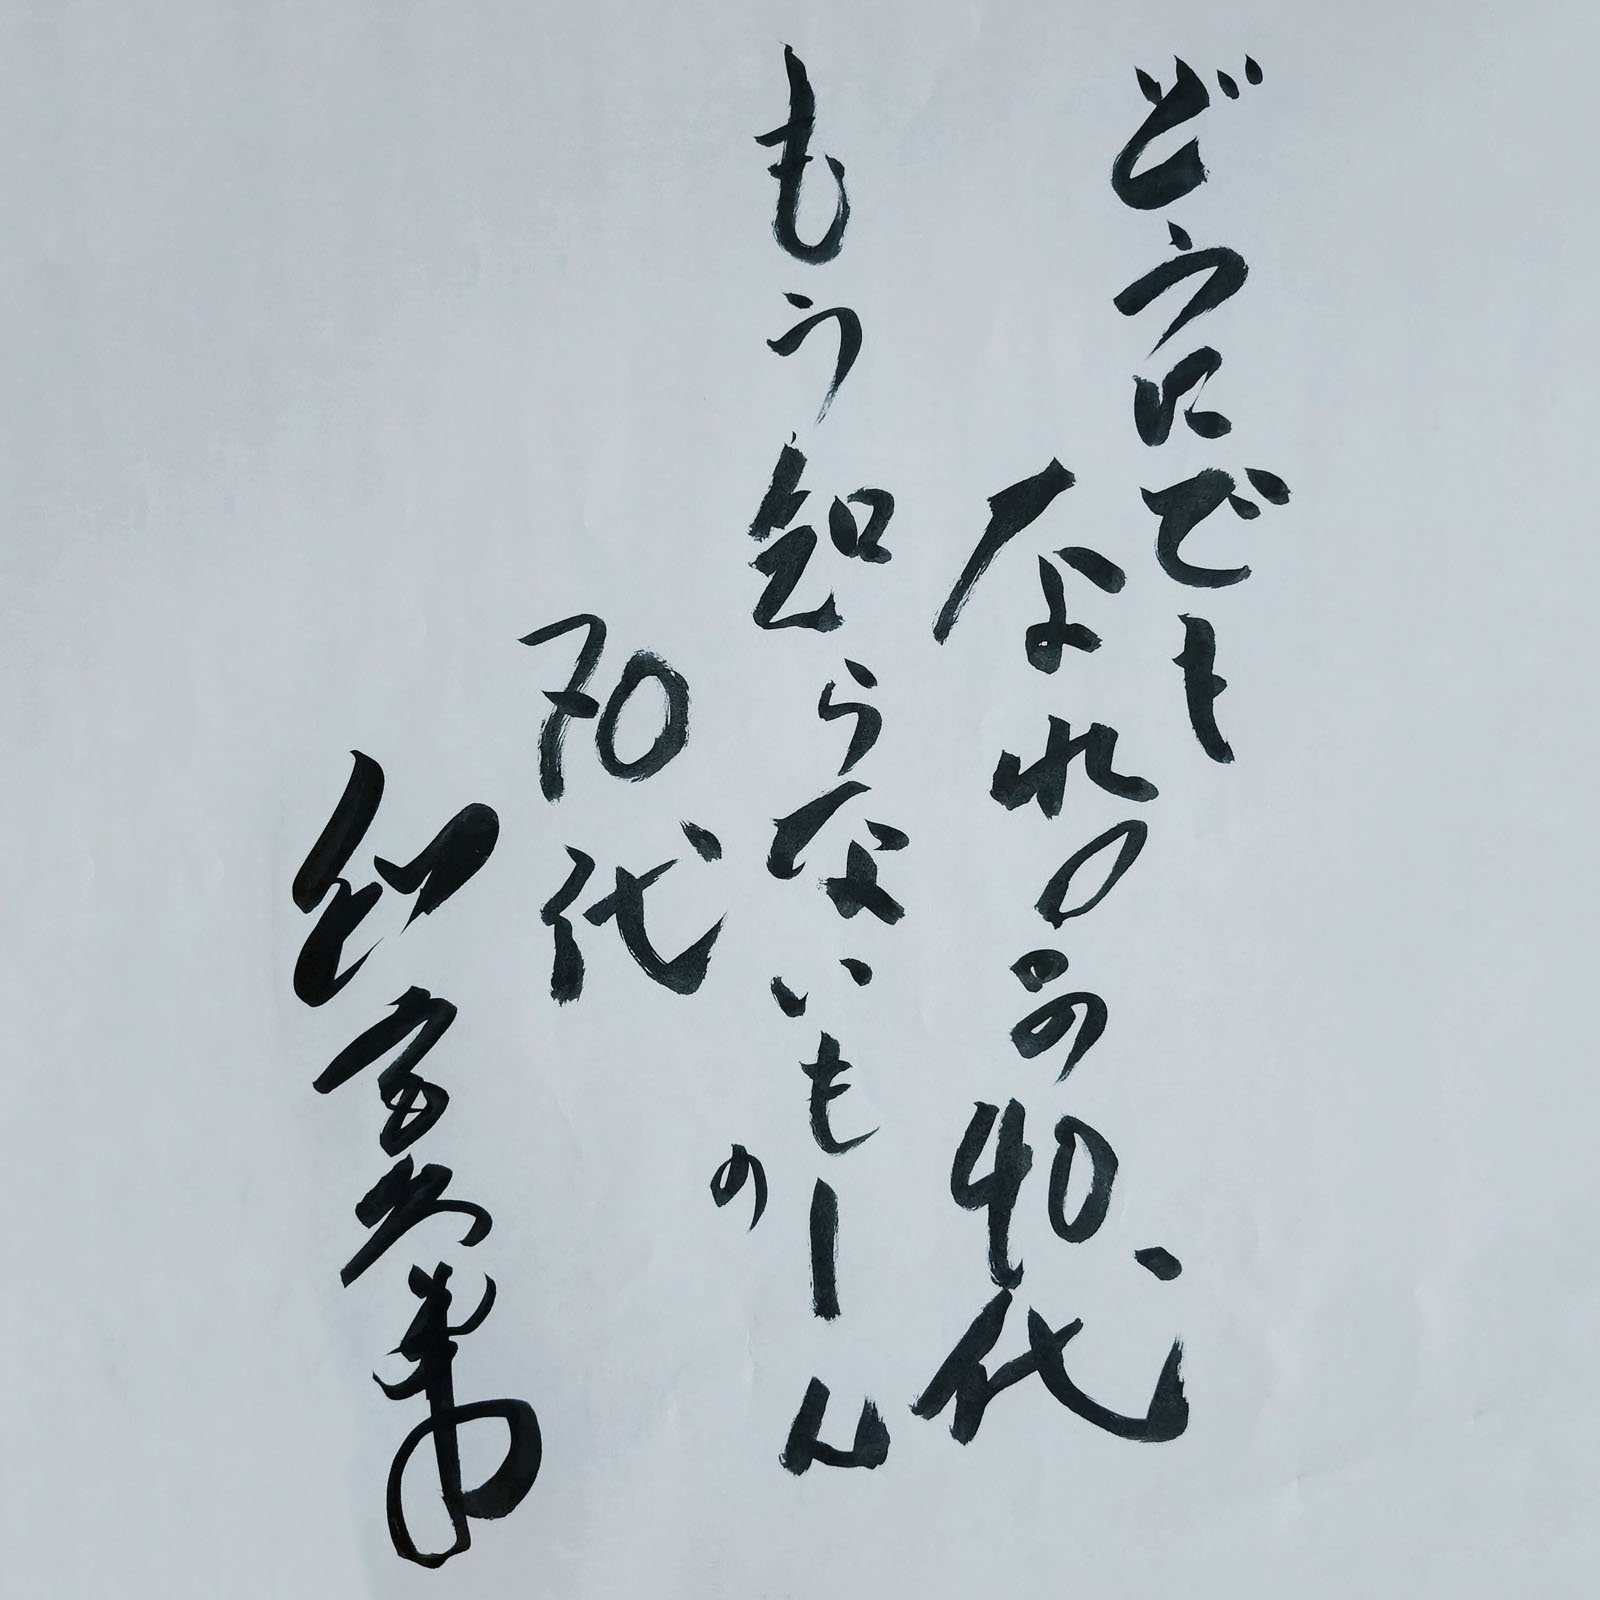 どうにでも
なれのこの40代
もう知らないもーん
の
70代